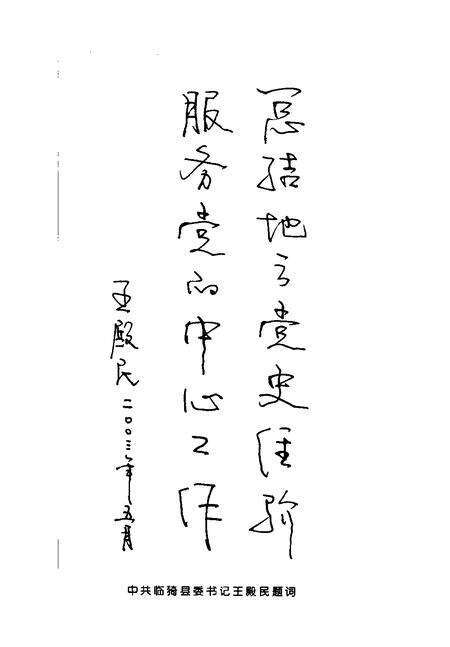 总结地方党史经验
服务党的中心工作
王殿民 二〇〇三年五月
中共临猗县委书记王殿民题词